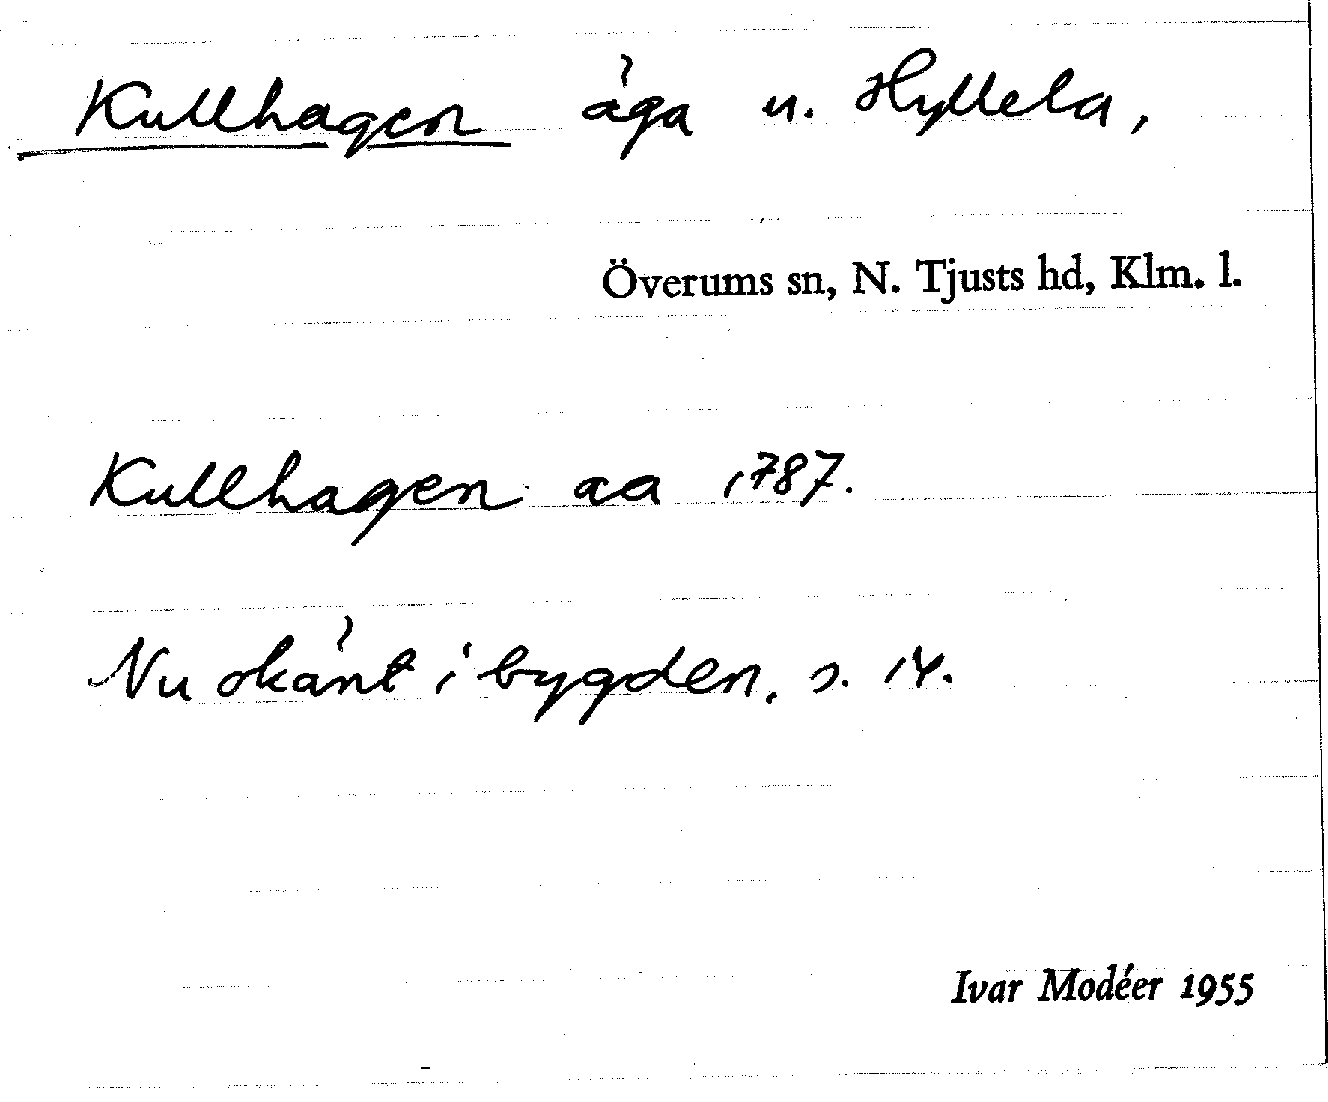 Kullhagen åga u. Hyllela,
Överums sn, N. Tjusts hd, Klm. l.
Kullhagen aa 1787.
Nu okänt i bygden. s. 14.
Ivar Modéer 1955